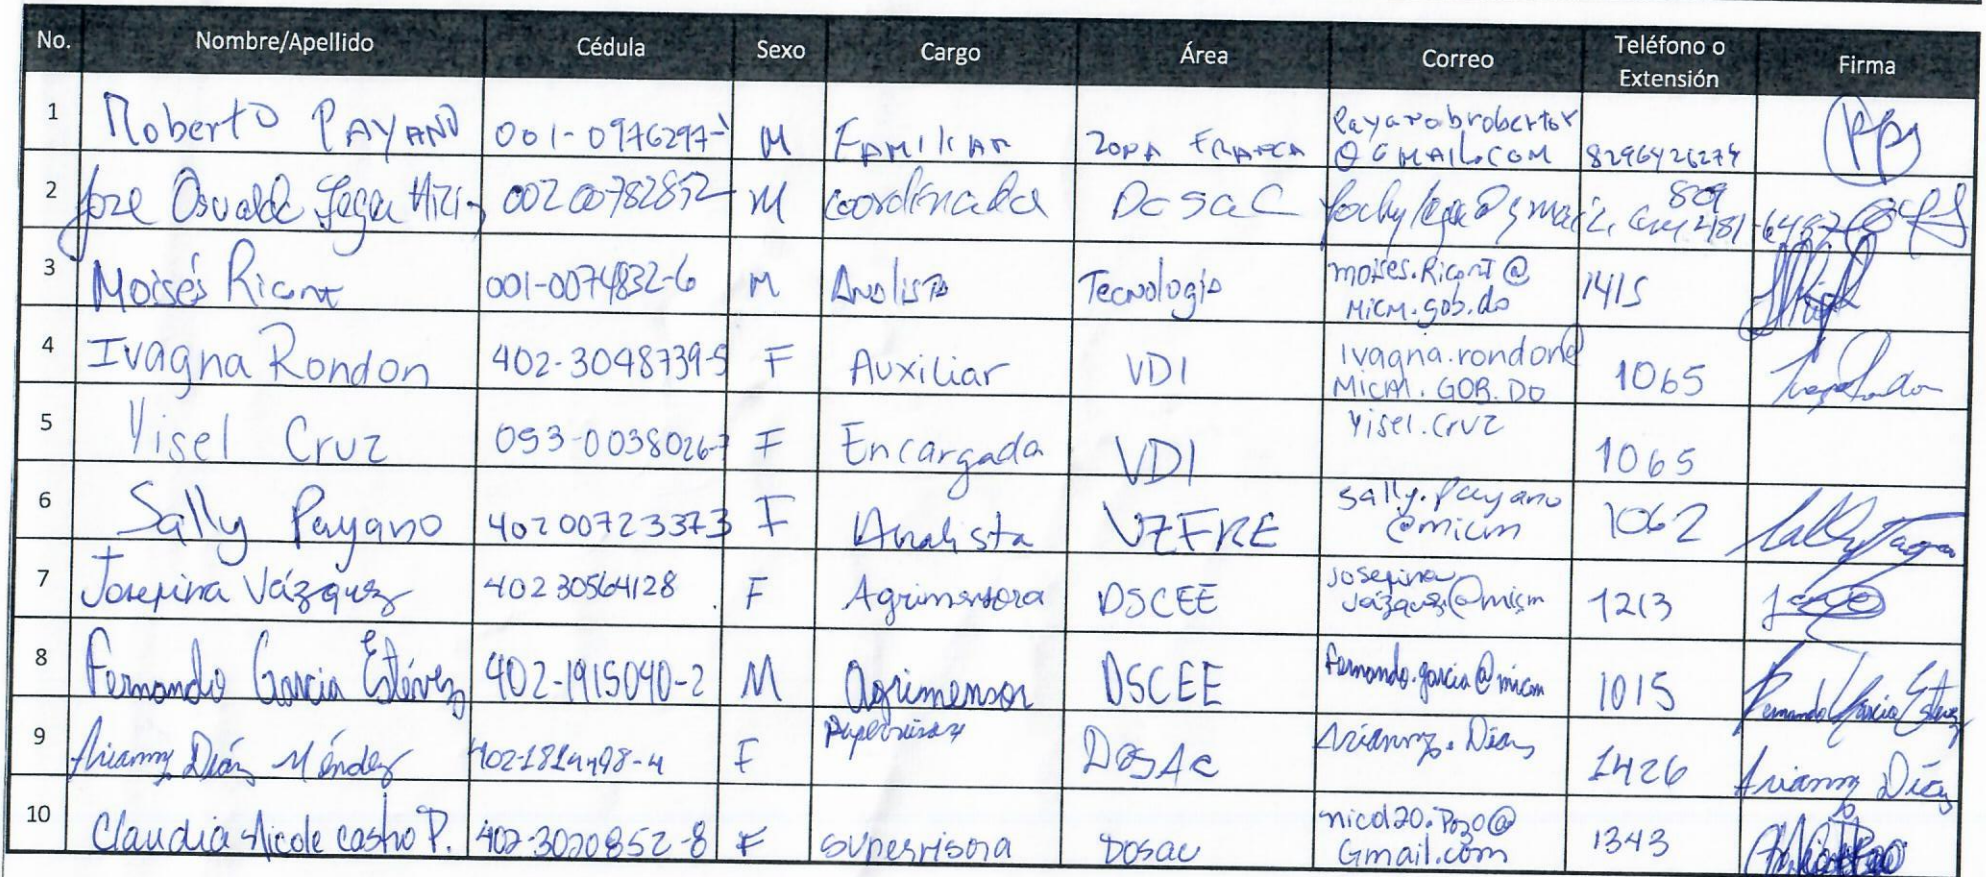 No. Nombre/Apellido Cédula Sexo Cargo Área Correo Teléfono o Extensión Firma
1 Roberto PAYANO 001-0976297- M FAMILIAR ZONA FRANCA Payanobrobertor @GMAIL.COM 8296426274
2 Jose Osvaldo 00200782852 M Coordinador DoSaC 809 481-6487
3 Moisés Ricart 001-0074832-6 M Analista Tecnología moises.Ricart@ MICM.gob.do 1415
4 Ivagna Rondon 402-3048739-5 F Auxiliar VDI Ivagna.rondon@ MICM.GOB.DO 1065
5 Yisel Cruz 053-0038026-7 F Encargada VDI Yisel.Cruz 1065
6 Sally Payano 40200723373 F Analista VZFRE Sally.Payano @micm 1062
7 Josefina Vázquez 40230564128 F Agrimensora DSCEE Josefina Vázquez@micm 1213
8 Fernando Garcia Estévez 402-1915040-2 M Agrimensor DSCEE Fernando.garcia@micm 1015 Fernando Garcia Estévez
9 Arianny Díaz Méndez F DoSAC Arianny.Díaz 1426 Arianny Díaz
10 Claudia Nicole Castro P. 402-3020852-8 F Supervisora Dosac nicol20.Pozo@ Gmail.com 1343